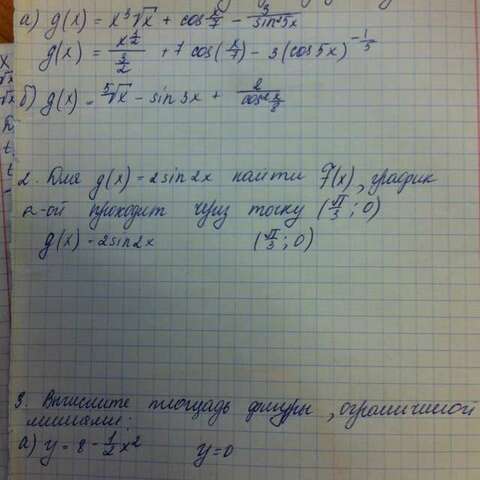 а) g(x) = x³√x + cos x/7 - 3/sin²5x
g(x) = x^(1/2)/(3/2) + 7 cos(x/7) - 3(cos5x)^(-1/5)
б) g(x) = ⁵√x - sin 3x + 2/cos² x/8
2. Для g(x) = 2sin2x найти F(x), график
к-ой проходит чуиз тоску (π/3; 0)
g(x) - 2sin2x (π/3; 0)
3. Вычислите площадь фигуры, ограниченой
линиами:
а) y = 8 - 1/2 x² y = 0